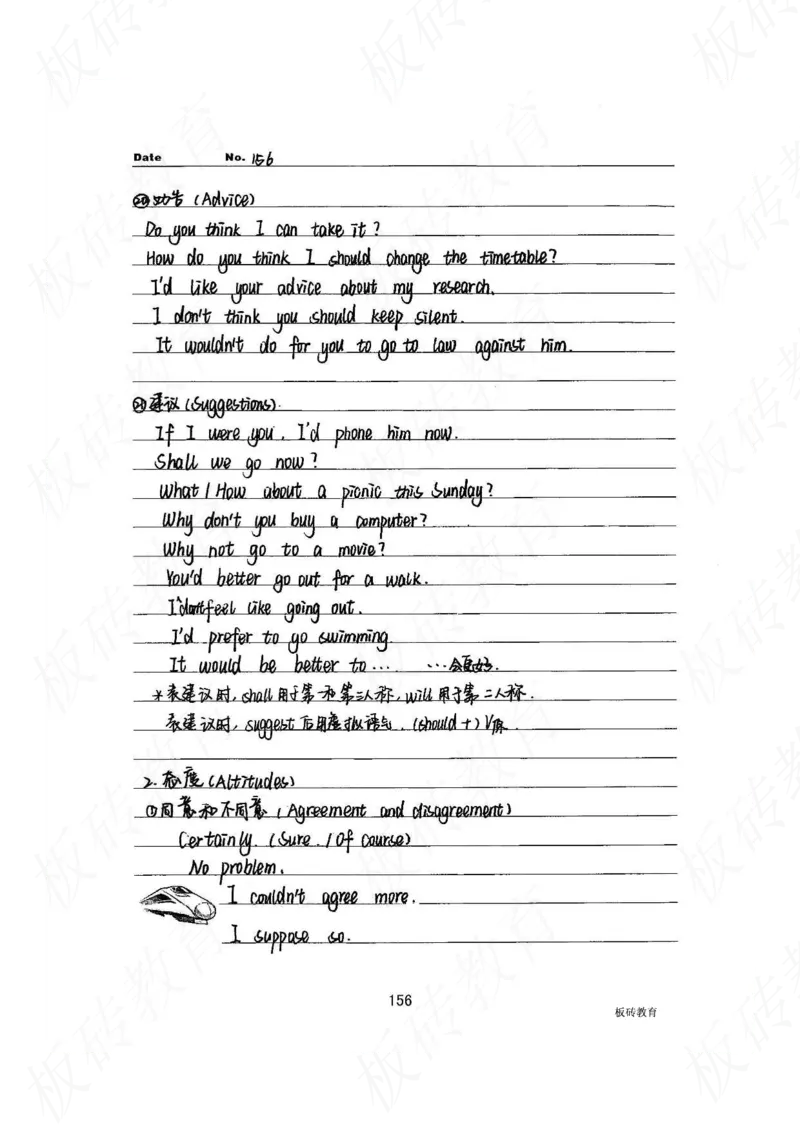 Date No. 156
⑳劝告 (Advice)
Do you think I can take it?
How do you think I should change the timetable?
I'd like your advice about my research.
I don't think you should keep silent.
It wouldn't do for you to go to law against him.
㉑建议 (Suggestions).
If I were you, I'd phone him now.
Shall we go now?
What / How about a picnic this Sunday?
Why don't you buy a computer?
Why not go to a movie?
You'd better go out for a walk.
I don't feel like going out.
I'd prefer to go swimming.
It would be better to... ...会更好.
*表建议时, shall用于第一和第三人称, will用于第二人称.
表建议时, suggest后用虚拟语气. (should+) V原
2. 态度 (Altitudes)
①同意和不同意 (Agreement and disagreement)
Certainly. (Sure. / Of course)
No problem.
I couldn't agree more.
I suppose so.
156
板砖教育